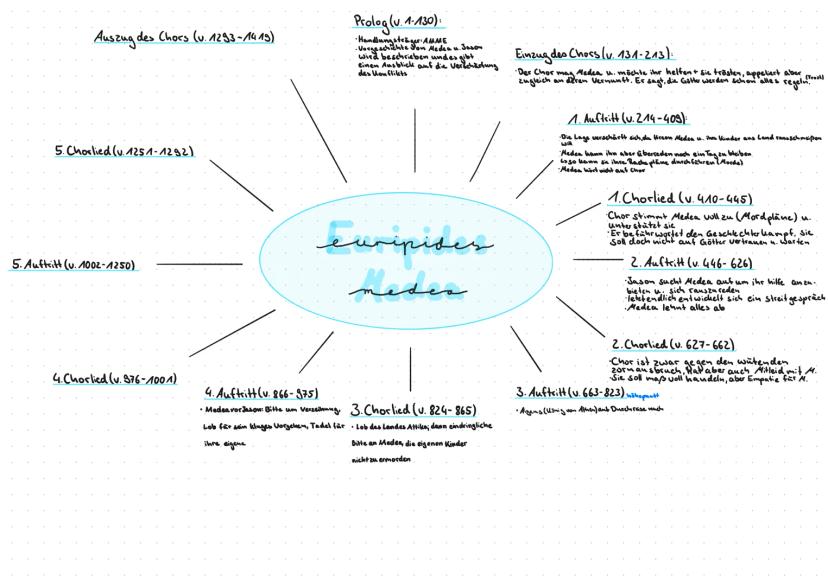 Auszug des Chors (v. 1293-1419)
Prolog (v. 1-130):
· Handlungsträger: AMME
· Vorgeschichte von Medea u. Jason
wird beschrieben und es gibt
einen Ausblick auf die Verschärfung
des Konflikts
Einzug des Chors (v. 131-213):
· Der Chor mag Medea u. möchte ihr helfen + sie trösten, appeliert aber
zugleich an deren Vernunft. Er sagt, die Götter werden schon alles regeln. (Trost)
1. Auftritt (v. 214-409):
· Die Lage verschärft sich, da Kreon Medea u. ihre Kinder ans Land rausschmeißen
will
· Medea kann ihn aber überreden noch ein Tag zu bleiben
so kann sie ihre Rachepläne durchführen (Morde)
· Medea hört nicht auf Chor
1. Chorlied (v. 410-445)
· Chor stimmt Medea voll zu (Mordpläne) u.
unterstützt sie
· Er befürwortet den Geschlechterkampf, sie
soll doch nicht auf Götter vertrauen u. warten
2. Auftritt (v. 446-626)
· Jason sucht Medea auf um ihr hilfe anzu-
bieten u. sich rauszureden
· letztendlich entwickelt sich ein streitgespräch
· Medea lehnt alles ab
2. Chorlied (v. 627-662)
· Chor ist zwar gegen den wütenden
zornausbruch, Hat aber auch Mitleid mit M.
· Sie soll maßvoll handeln, aber Empatie für M.
3. Auftritt (v. 663-823) höhepunkt
· Aigeus (König von Athen) auf Durchreise nach
3. Chorlied (v. 824-865)
· Lob des Landes Attika; dann eindringliche
Bitte an Medea, die eigenen Kinder
nicht zu ermorden
4. Auftritt (v. 866-975)
· Medea vor Jason: Bitte um Verzeihung,
Lob für sein kluges Vorgehen, Tadel für
ihre eigene
4. Chorlied (v. 976-1001)
5. Auftritt (v. 1002-1250)
5. Chorlied (v. 1251-1292)
Euripides
euripides
Medea
medea